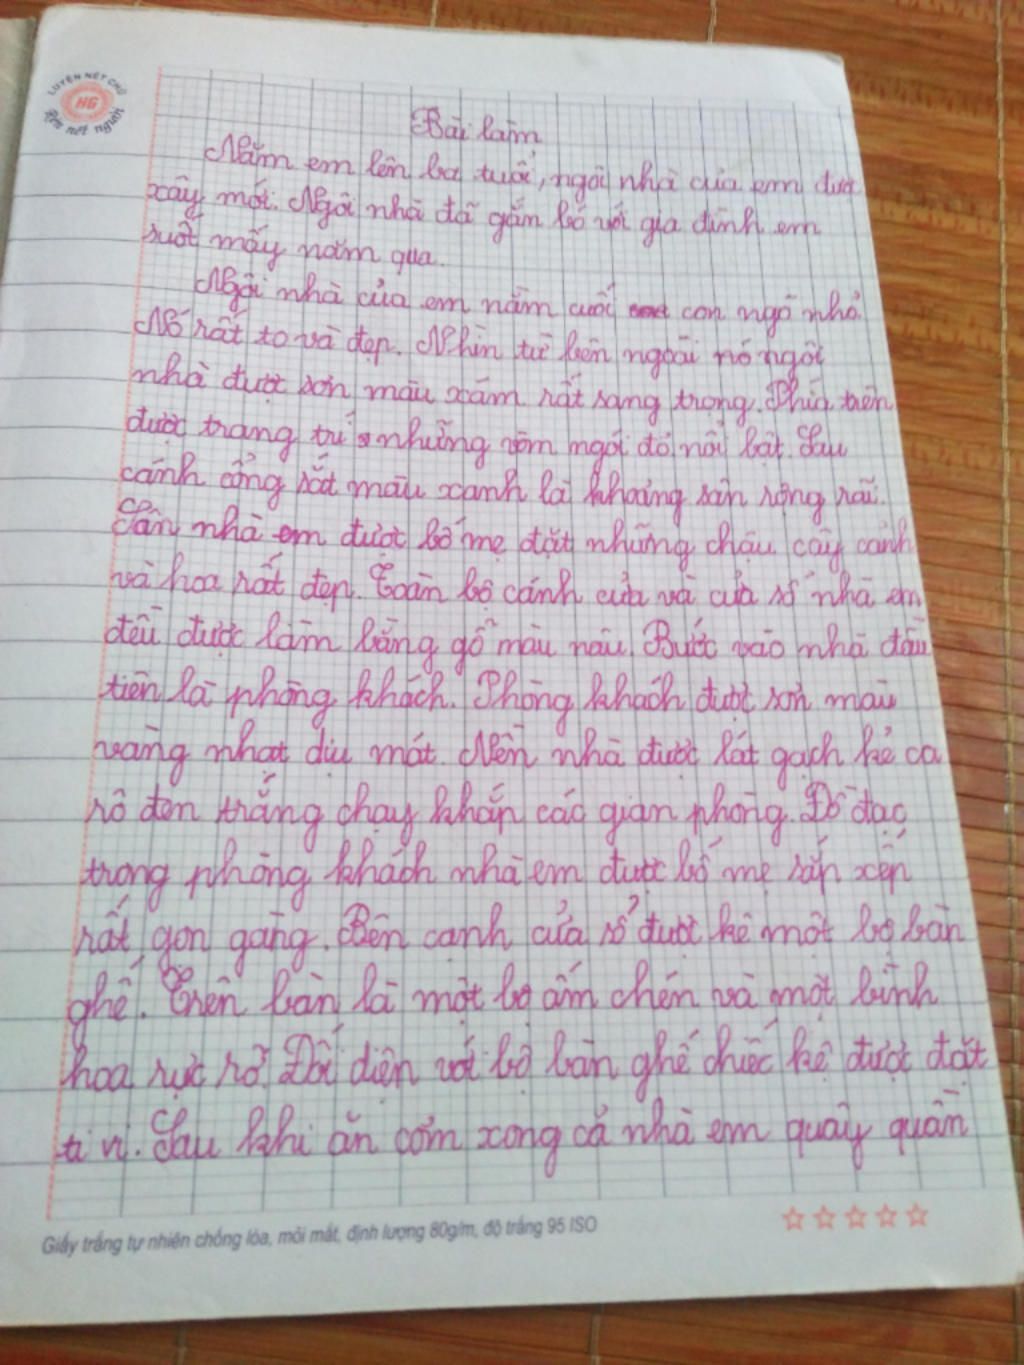 LUYỆN NÉT CHỮ
HG
Rèn nết người
Bài làm
Năm em lên ba tuổi, ngôi nhà của em được
xây mới. Ngôi nhà đã gắn bó với gia đình em
suốt mấy năm qua.
Ngôi nhà của em nằm cuối con ngõ nhỏ.
Nó rất to và đẹp. Nhìn từ bên ngoài nó ngôi
nhà được sơn màu xám rất sang trọng. Phía trên
được trang trí những vòm ngói đỏ nổi bật. Sau
cánh cổng sắt màu xanh là khoảng sân rộng rãi.
Sân nhà em được bố mẹ đặt những chậu cây cảnh
và hoa rất đẹp. Toàn bộ cánh cửa và cửa sổ nhà em
đều được làm bằng gỗ màu nâu. Bước vào nhà đầu
tiên là phòng khách. Phòng khách được sơn màu
vàng nhạt dịu mát. Nền nhà được lát gạch kẻ ca
rô đen trắng chạy khắp các gian phòng. Đồ đạc
trong phòng khách nhà em được bố mẹ sắp xếp
rất gọn gàng. Bên cạnh cửa sổ được kê một bộ bàn
ghế. Trên bàn là một bộ ấm chén và một bình
hoa rực rỡ. Đối diện với bộ bàn ghế chiếc kệ được đặt
ti vi. Sau khi ăn cơm xong cả nhà em quây quần
Giấy trắng tự nhiên chống lóa, mỏi mắt, định lượng 80g/m, độ trắng 95 ISO